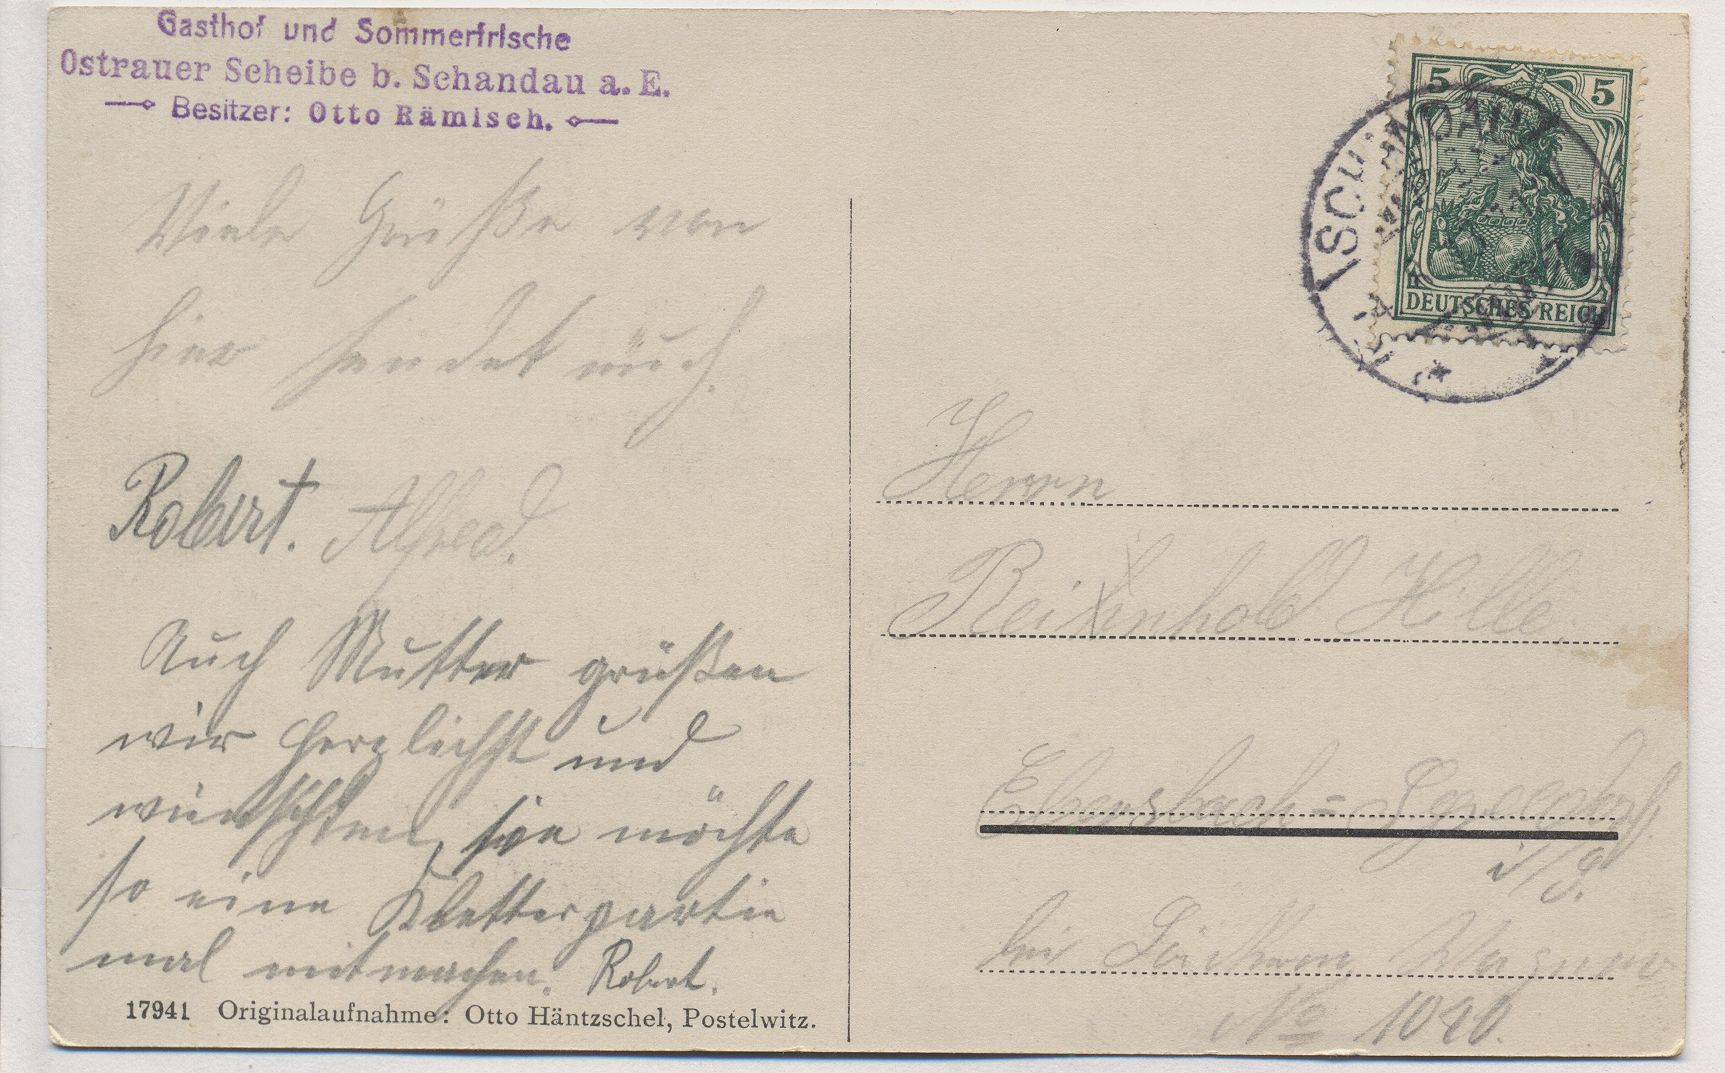 Gasthof und Sommerfrische
Ostrauer Scheibe b. Schandau a. E.
Besitzer: Otto Rämisch.
5 5
SCHANDAU
DEUTSCHES REICH
Viele Grüße von
hier sendet euch
Robert. Alfred.
Auch Mutter grüßen
wir herzlichst und
wünschten, sie möchte
so eine Kletterpartie
mal mitmachen. Robert.
Herrn
Reinhold Hille.
Ebersbach=
i/S.
bei Wagner
No 1040.
17941 Originalaufnahme: Otto Häntzschel, Postelwitz.